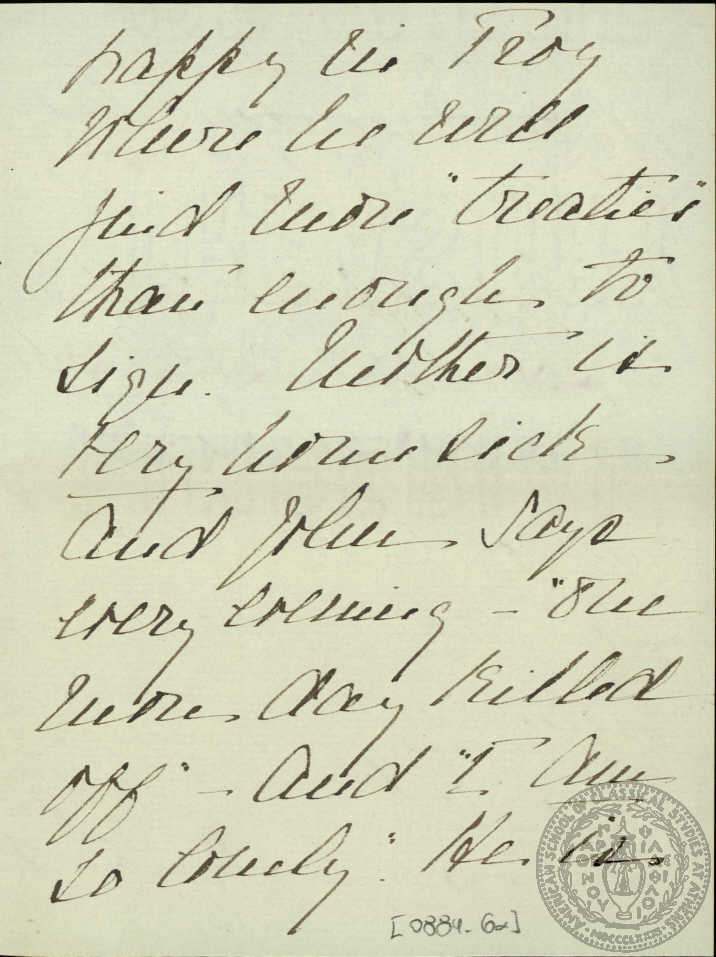 happy in Troy
where he will
find more "treaties"
than enough to
sign. Mother is
very homesick
and John says
every evening - "One
more day killed
off" - and "I am
so lonely". He is
[0884-62]
AMERICAN SCHOOL OF CLASSICAL STUDIES AT ATHENS
MDCCCLXXXI